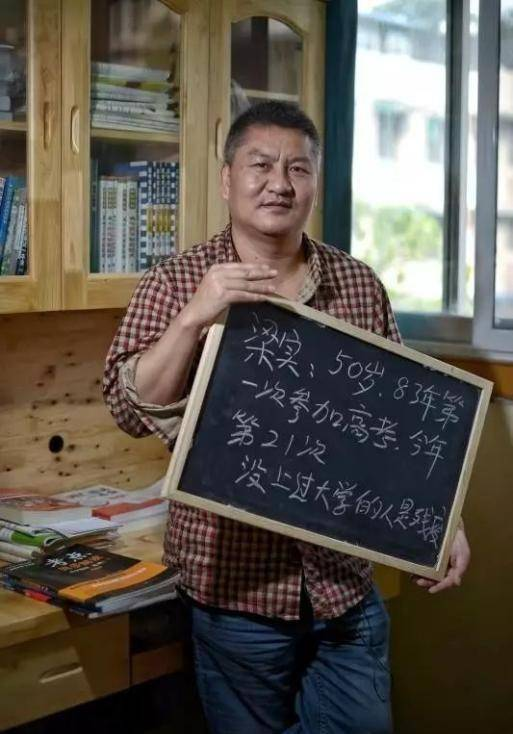 梁实：50岁.83年第
一次参加高考.今年
第21次
没上过大学的人是残废